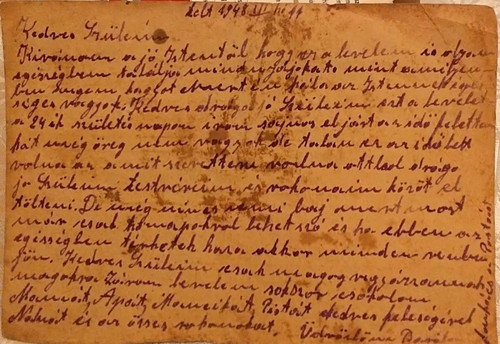 Kelt 1948 II hó 11
Kedves Szüleim.
Kivánom a jó Istentöl hogy ez a levelem is olyan
egésségben találja mindnyájojokat mint amilyen
ben engem hagyot mert én hála az Istennek egés
séges vagyok. Kedves drága jó Szüleim ezt a levelet
a 24ik születés napon irom sajnos eljárt az idő felettem
hát még öreg nem vagyok de talán ez az idő lett
volna az amit szerettem volna ottkol drága
jó Szüleim testvéreim és rokonaim közöt el
tölteni. De még nincs semi baj mert most
már csak honapokrol lehet szó és ha ebben az
egésségben térhetek haza akkor minden rendbe
jön. Kedves Szüleim csak magog vigyázzanak
magokra Zárom levelem sokszor csókolom
Mamát, Apát, Mancikát, Pistát kedves feleségével
Nánát és az összes rokonokat. Üdvözlöm